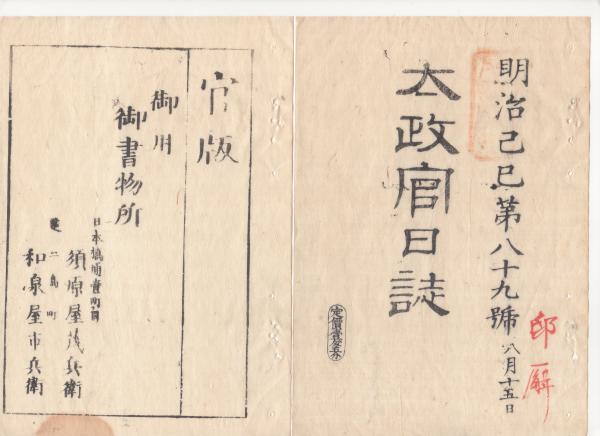 明治己巳第八十九號
八月十五日
太政官日誌
官版
御用
御書物所
日本橋通壹町目
須原屋茂兵衛
和泉屋市兵衛